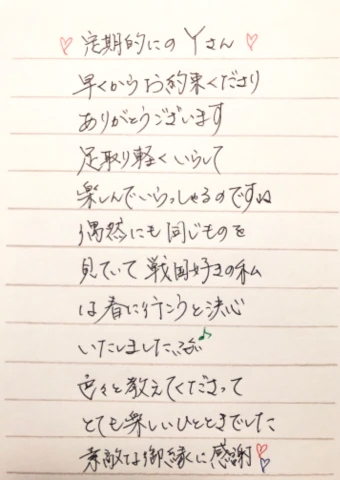 ♡ 定期的にの Yさん ♡
早くから お約束くださり
ありがとうございます
足取り軽く いらして
楽しんでいらっしゃるのですね
偶然にも 同じものを
見ていて 戦国好きの私
は春に行こうと決心
いたしました♪
色々と教えてくださって
とても楽しいひとときでした
素敵な御縁に感謝♡♡